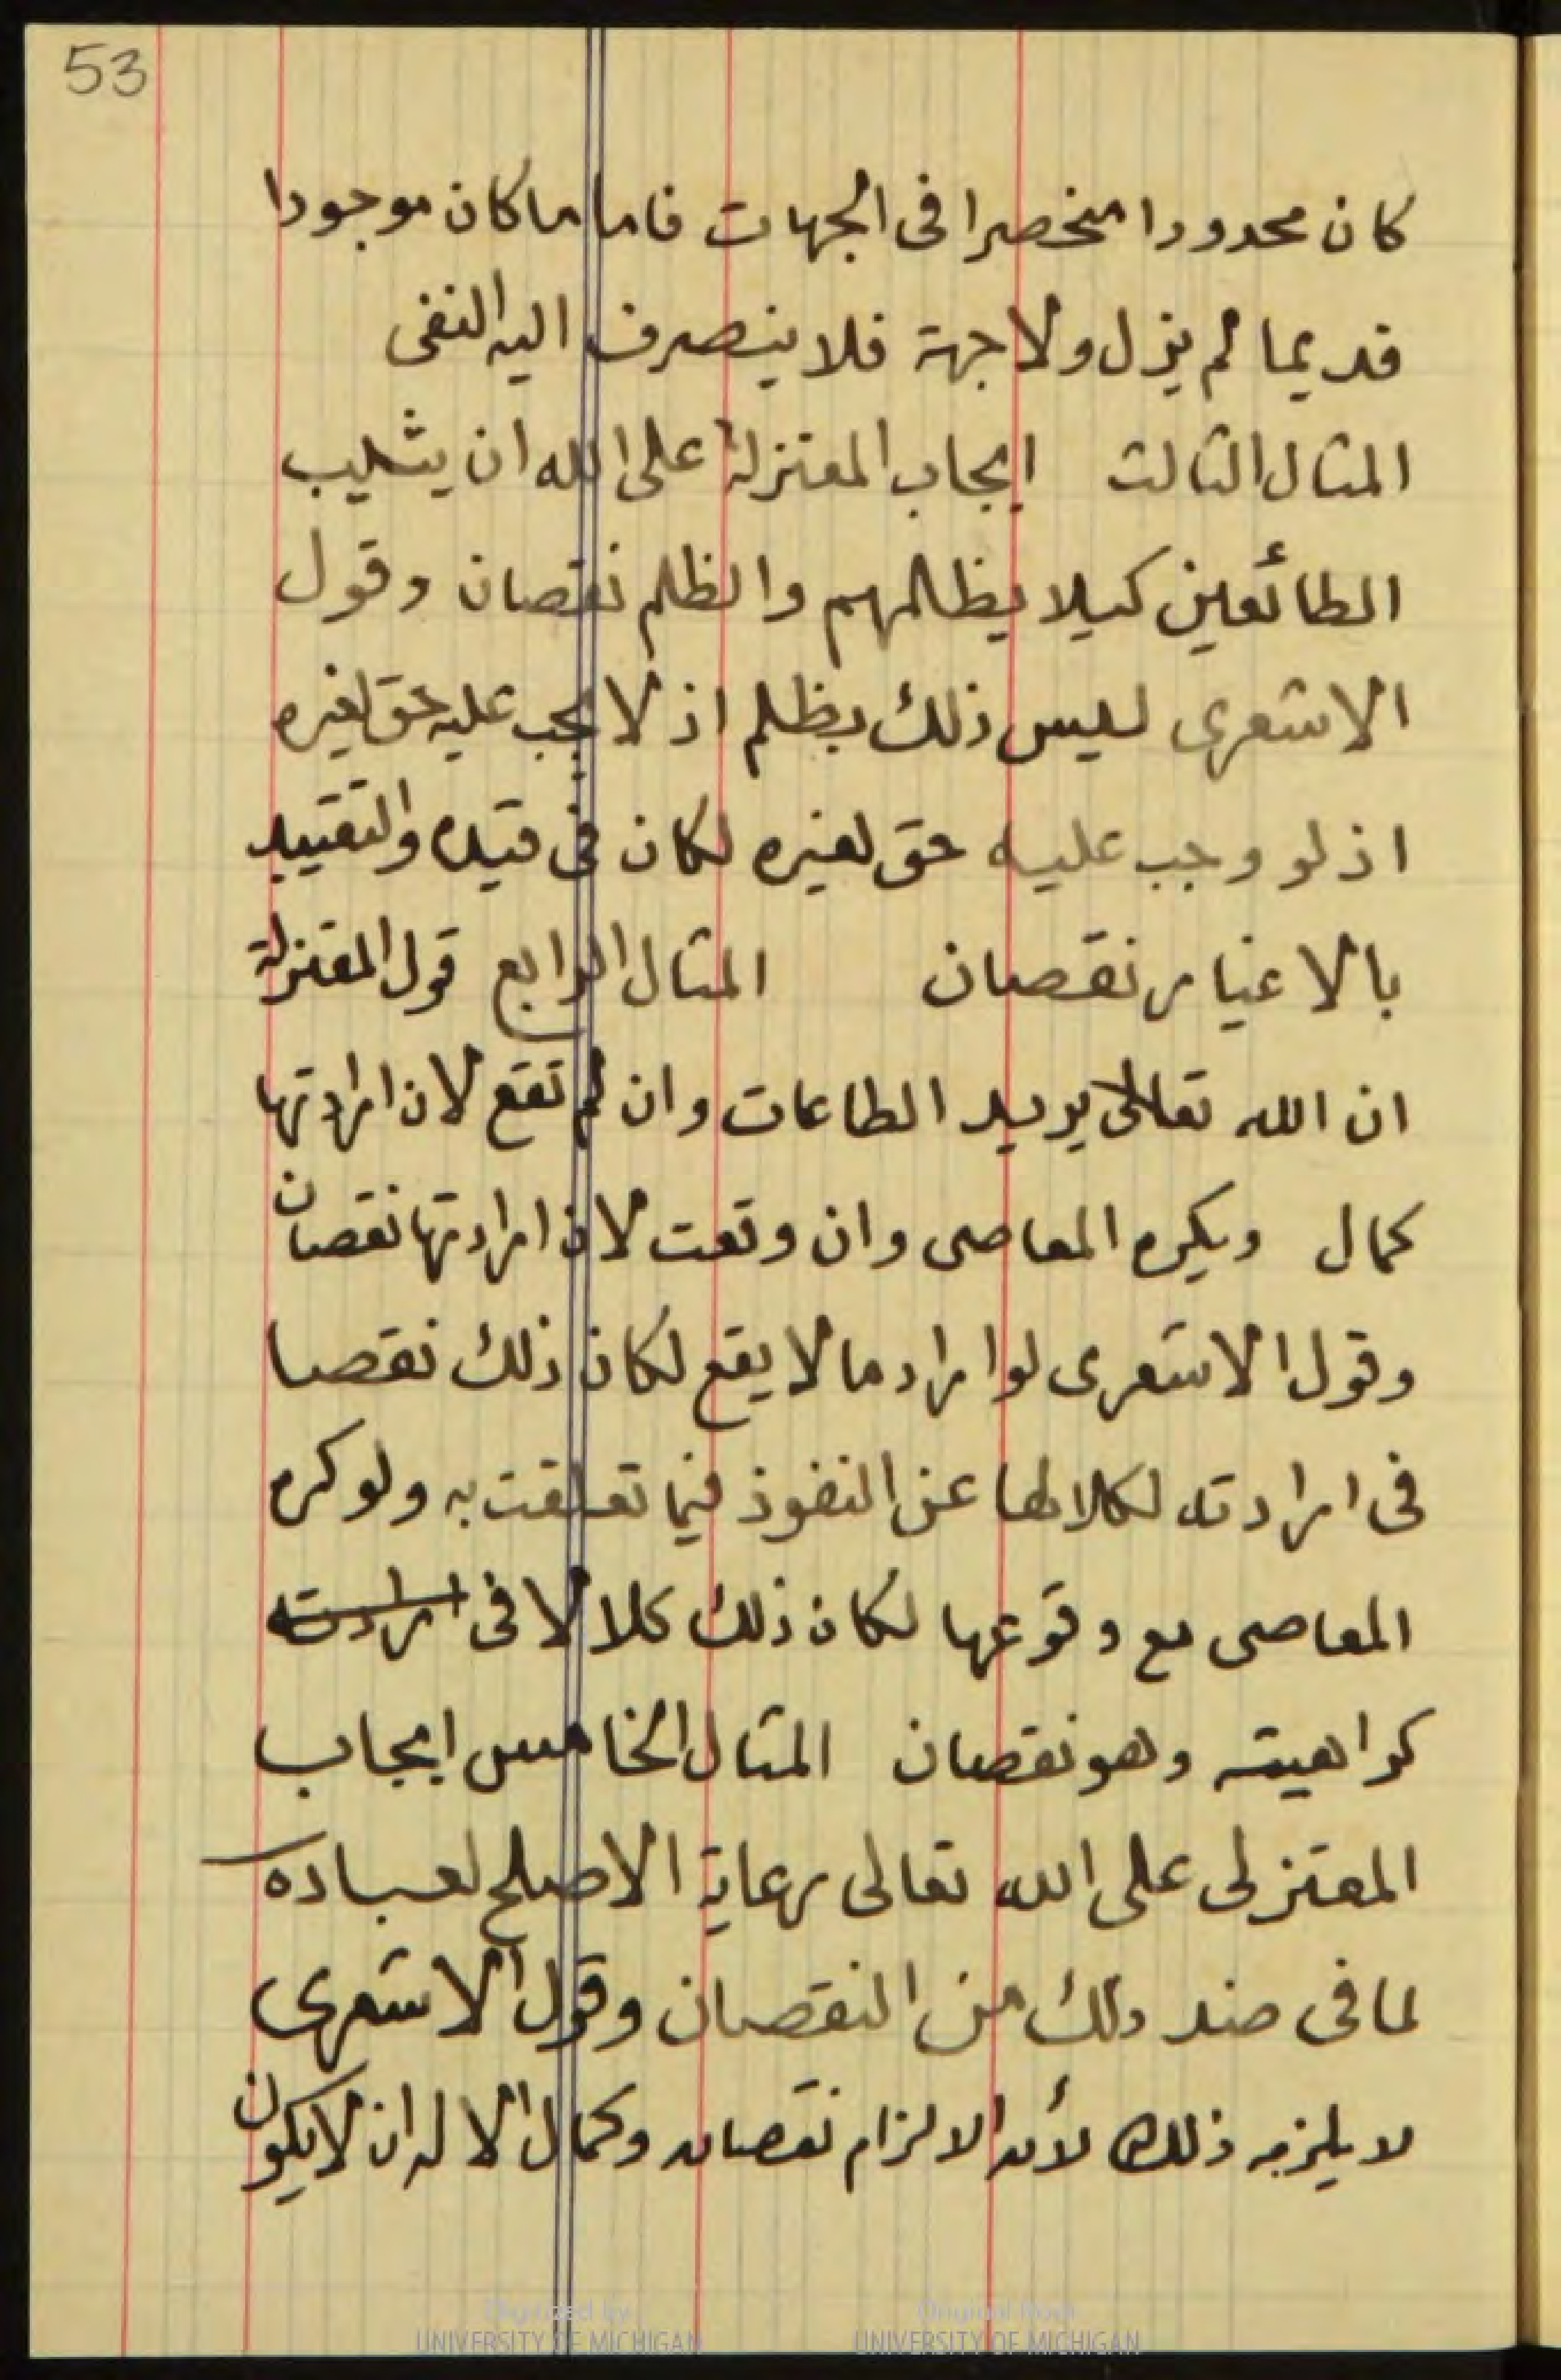 53
كان محدودا منحصرا فى الجهات فاما ما كان موجودا
قديما لم يزل ولا جهة فلا ينصرف اليه النفى
المثال الثالث ايجاب المعتزلة على الله ان يثيب
الطائعين كيلا يظلمهم والظلم نقصان وقول
الاشعرى ليس ذلك بظلم اذ لا يجب عليه حق لغيره
اذ لو وجب عليه حق لغيره لكان فى قيده والتقييد
بالاغيار نقصان المثال الرابع قول المعتزلة
ان الله تعالى يريد الطاعات وان لم تقع لان ارادتها
كمال ويكره المعاصى وان وقعت لان ارادتها نقصان
وقول الاشعرى لو اراد ما لا يقع لكان ذلك نقصا
فى ارادته لكلالها عن النفوذ فيما تعلقت به ولو كره
المعاصى مع وقوعها لكان ذلك كلالا فى ارادته
كراهيته وهو نقصان المثال الخامس ايجاب
المعتزلى على الله تعالى رعاية الاصلح لعباده
لما فى ضد ذلك من النقصان وقول الاشعرى
لا يلزمه ذلك لأن الالزام نقصان وكمال الاله ان لا يكون
Digitized by
UNIVERSITY OF MICHIGAN
Original from
UNIVERSITY OF MICHIGAN